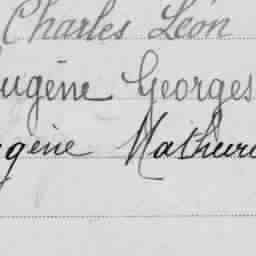 Charles Léon
ugène Georges
gène Mathuri